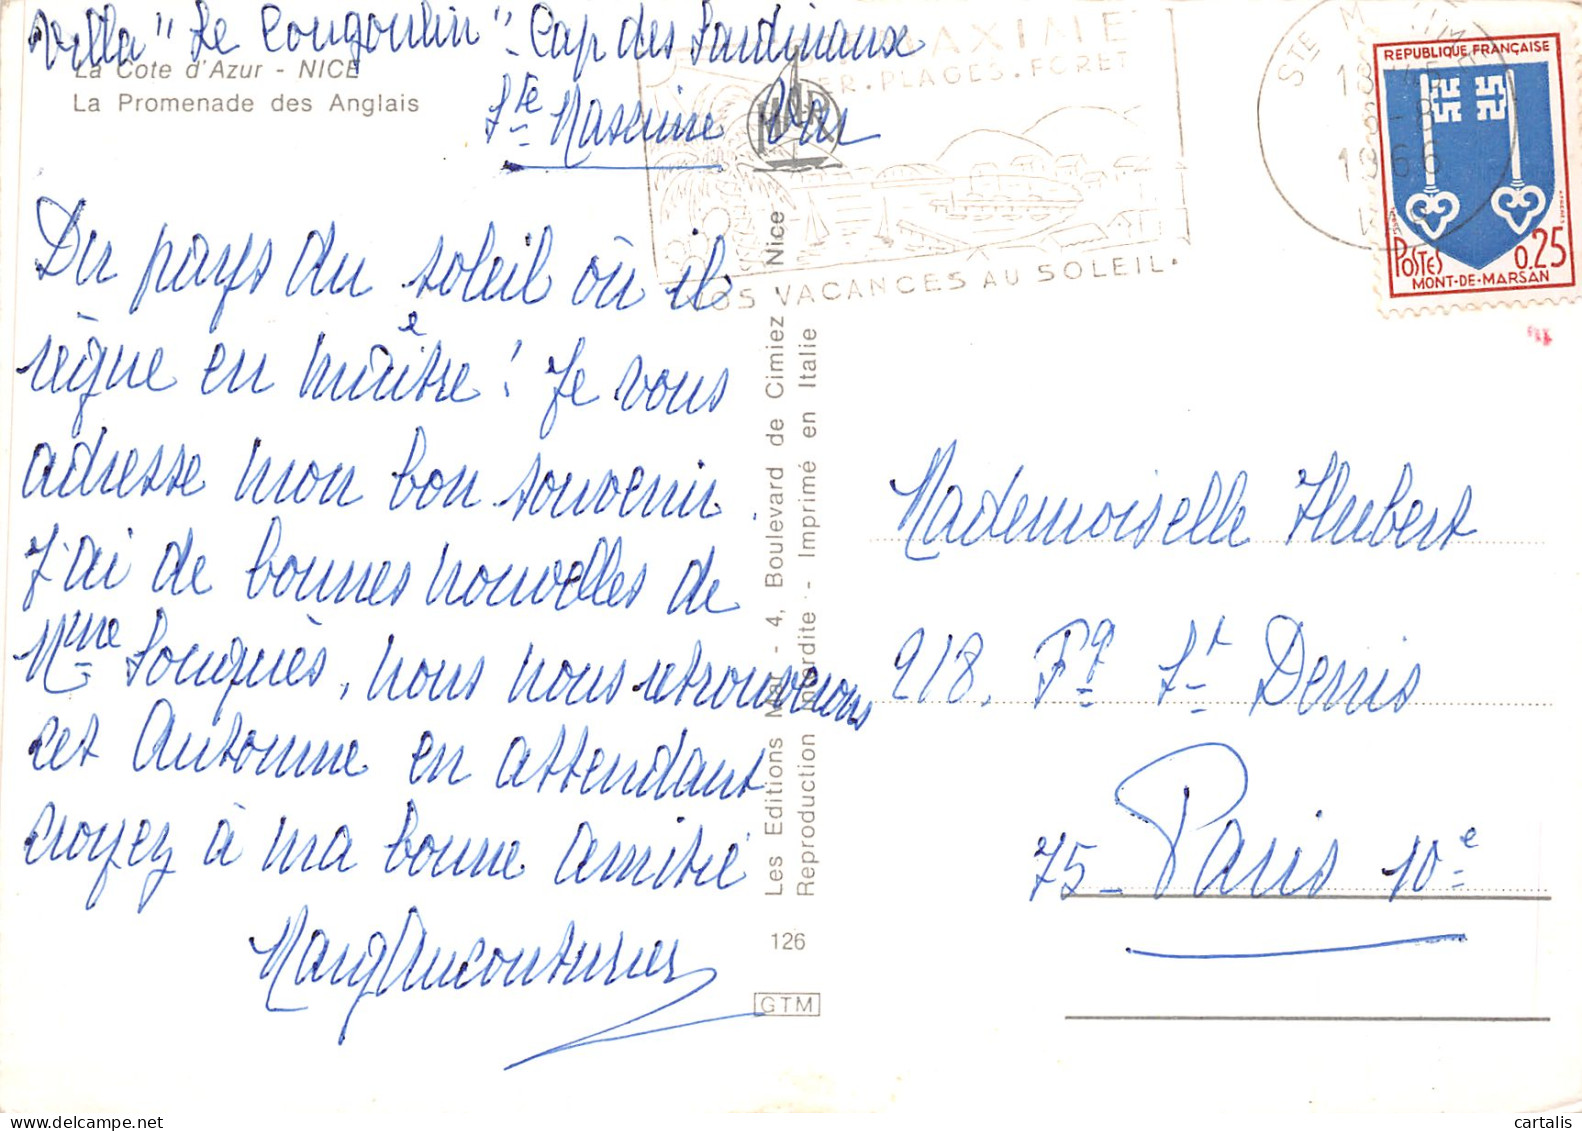 Villa "Le Cougoulin" - Cap des Sardinaux
Ste Maxime Var
La Côte d'Azur - NICE
La Promenade des Anglais
MAR
Du pays du soleil où il
règne en maître ! Je vous
adresse mon bon souvenir.
J'ai de bonnes nouvelles de
Mme Souquiès, nous nous retrouverons
cet Automne en attendant
croyez à ma bonne amitié
Les Editions Mar - 4, Boulevard de Cimiez - Nice
Reproduction Interdite - Imprimé en Italie
126
GTM
AXIME
ER. PLAGES. FORET
VOS VACANCES AU SOLEIL.
STE M
18
8-8
1966
VAR
REPUBLIQUE FRANÇAISE
POSTES
0,25
MONT-DE-MARSAN
Mademoiselle Hubert
218. Fg St Denis
75 - Paris 10e
cartalis